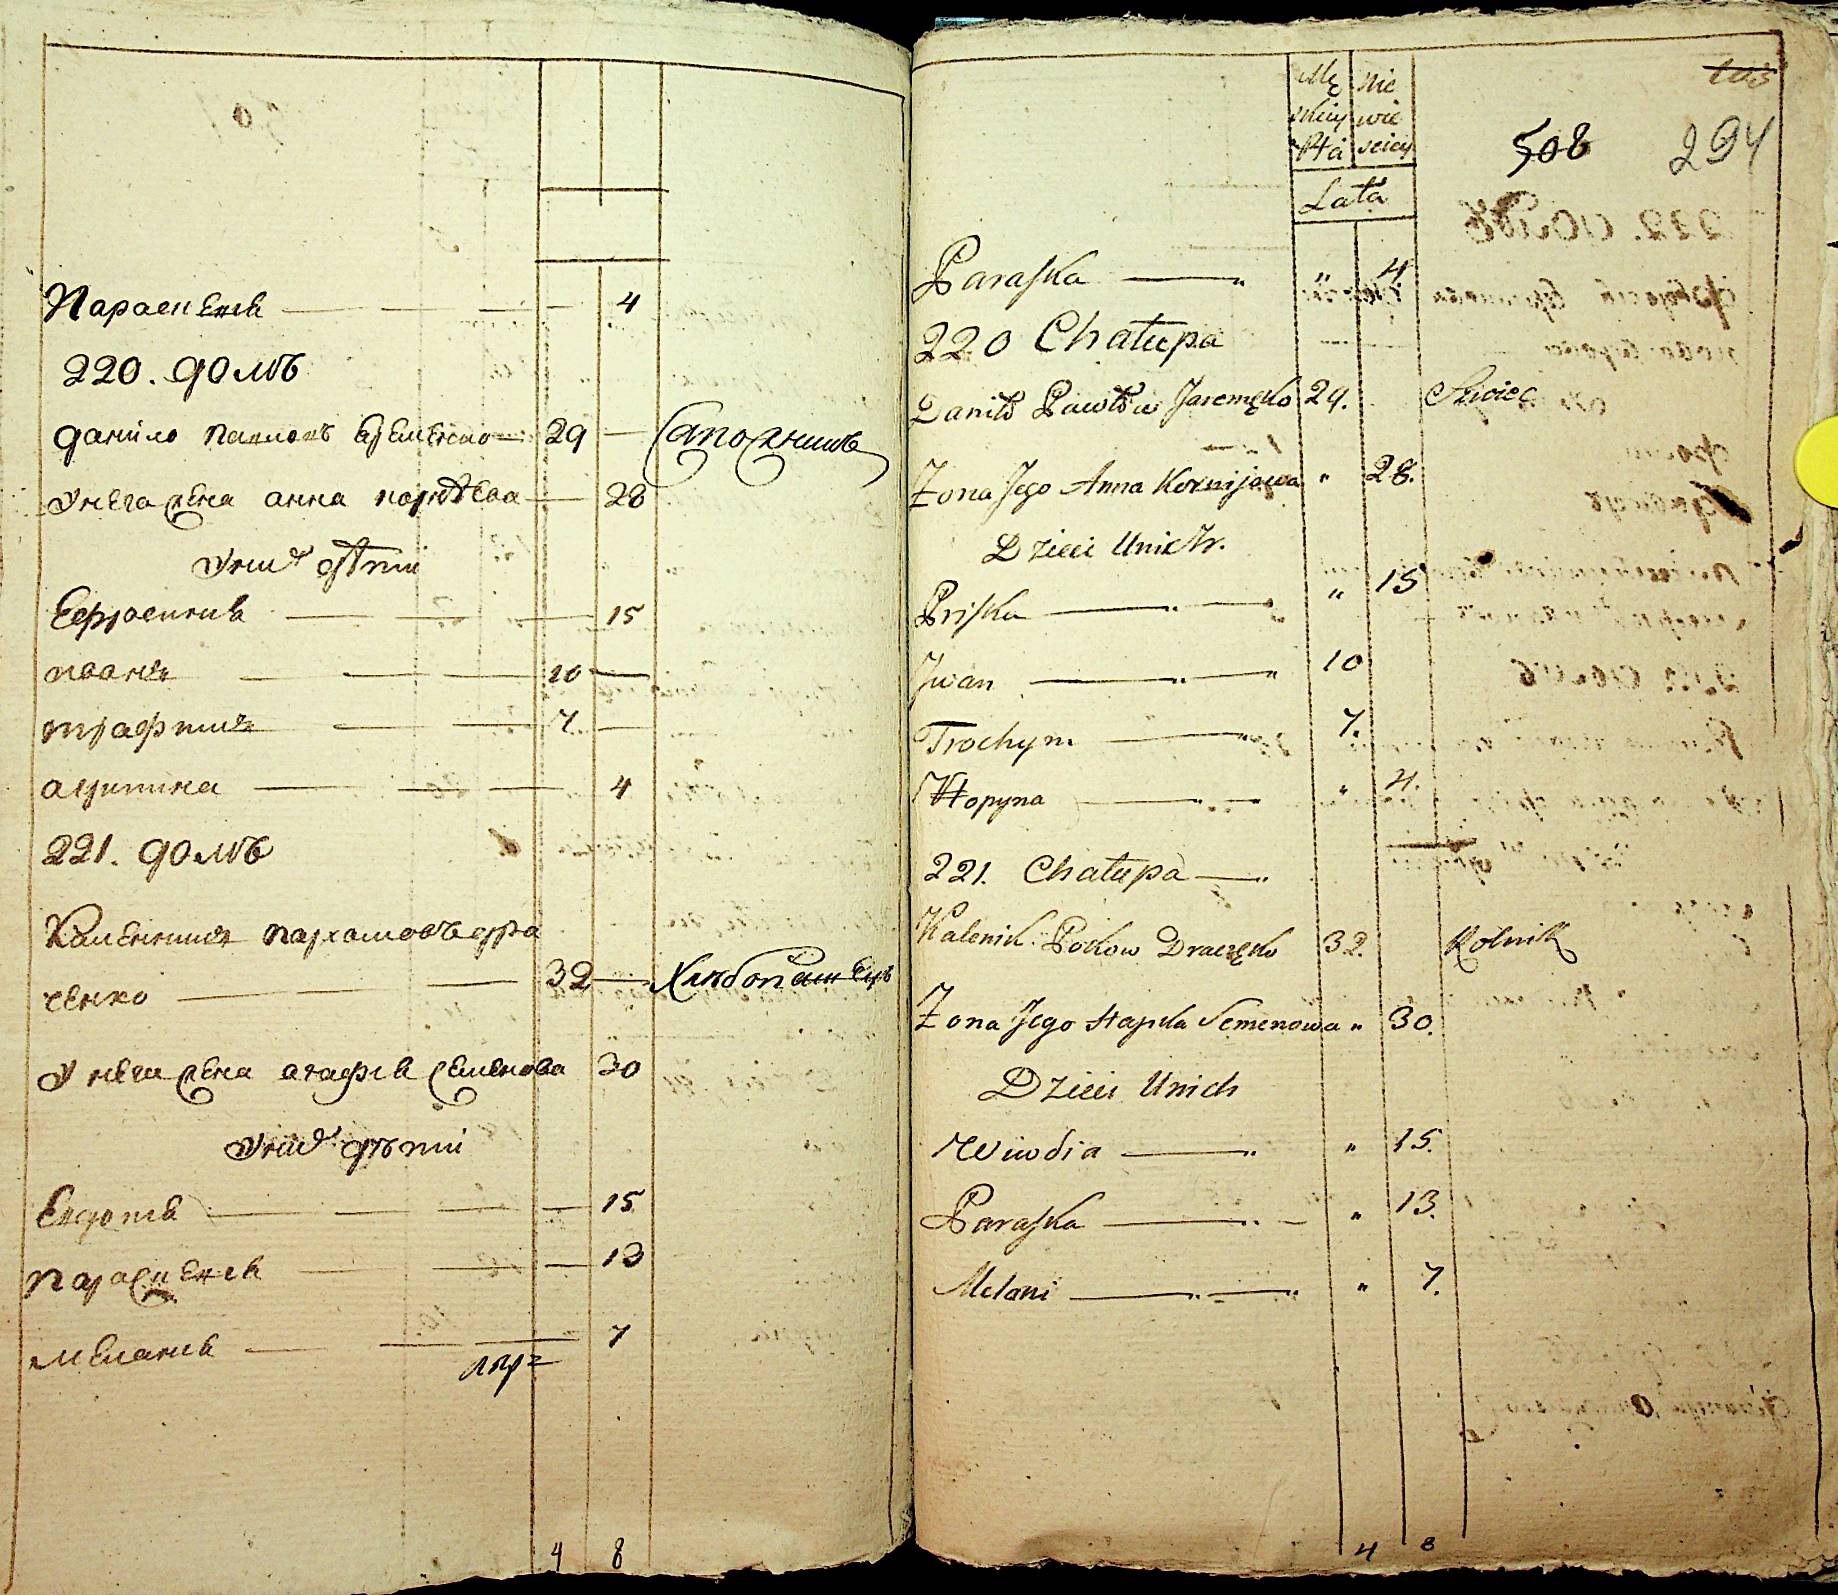 Параскевіа 4
220. домъ
данило павловъ Еременко 29 Сапожникъ
У него жена анна корнѣева 28
У них дѣти
Ефросиніа 15
иванъ 10
трофимъ 7
агрипина 4
221. домъ
Каленникъ пархомовъ дра
ченко 32 Хлѣбопашецъ
У него жена агафіа семенова 30
У них дѣти
Евдокіа 15
параскевіа 13
меланіа 7
4 8
508 294
Mę skiey Płci
Nie wie sciey
Lata
Paraska " 4
220 Chałupa
Daniło Pawłow Jaremęko 29. Szwiec
Zona Jego Anna Kornijowa " 28.
Dzieci Unich.
Priska " 15
Jwan 10
Trochym 7.
Horpyna " 4.
221. Chałupa
Kalenik Potkow Draczęko 32. Rolnik
Zona Jego Hapka Semenowa " 30.
Dzieci Unich
Wiwdia " 15.
Paraska " 13.
Melani " 7.
4 8